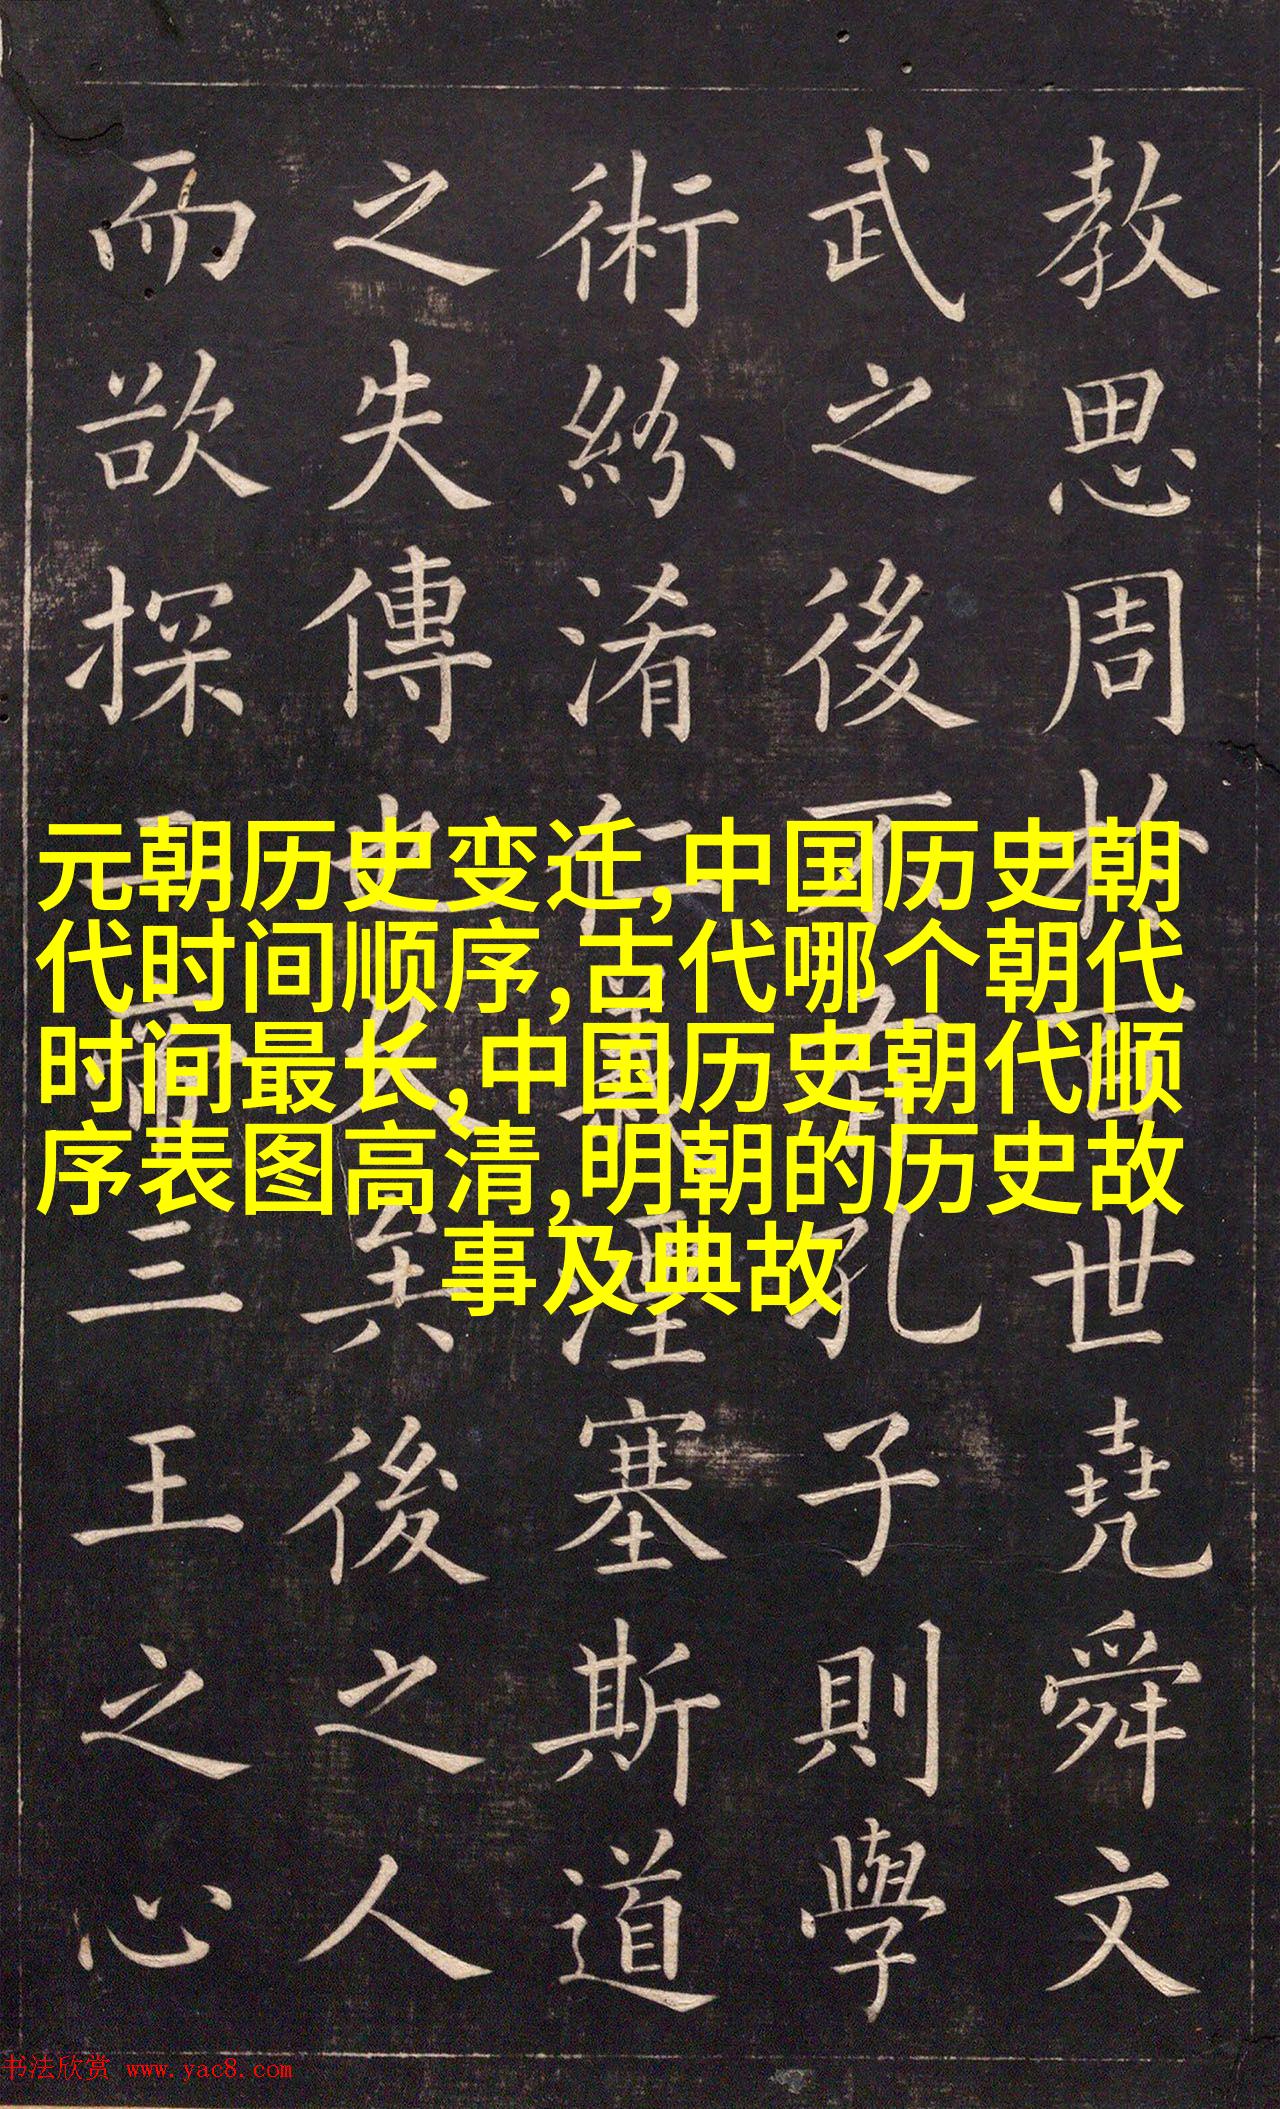 教思周於百世堯舜文
武之後不有孔子則學
術紛淆仁義湮塞斯道
之失傳也久矣後之人
而欲探二帝三王之心
元朝历史变迁,中国历史朝
代时间顺序,古代哪个朝代
时间最长,中国历史朝代顺
序表图高清,明朝的历史故
事及典故
书法欣赏 www.yac8.com